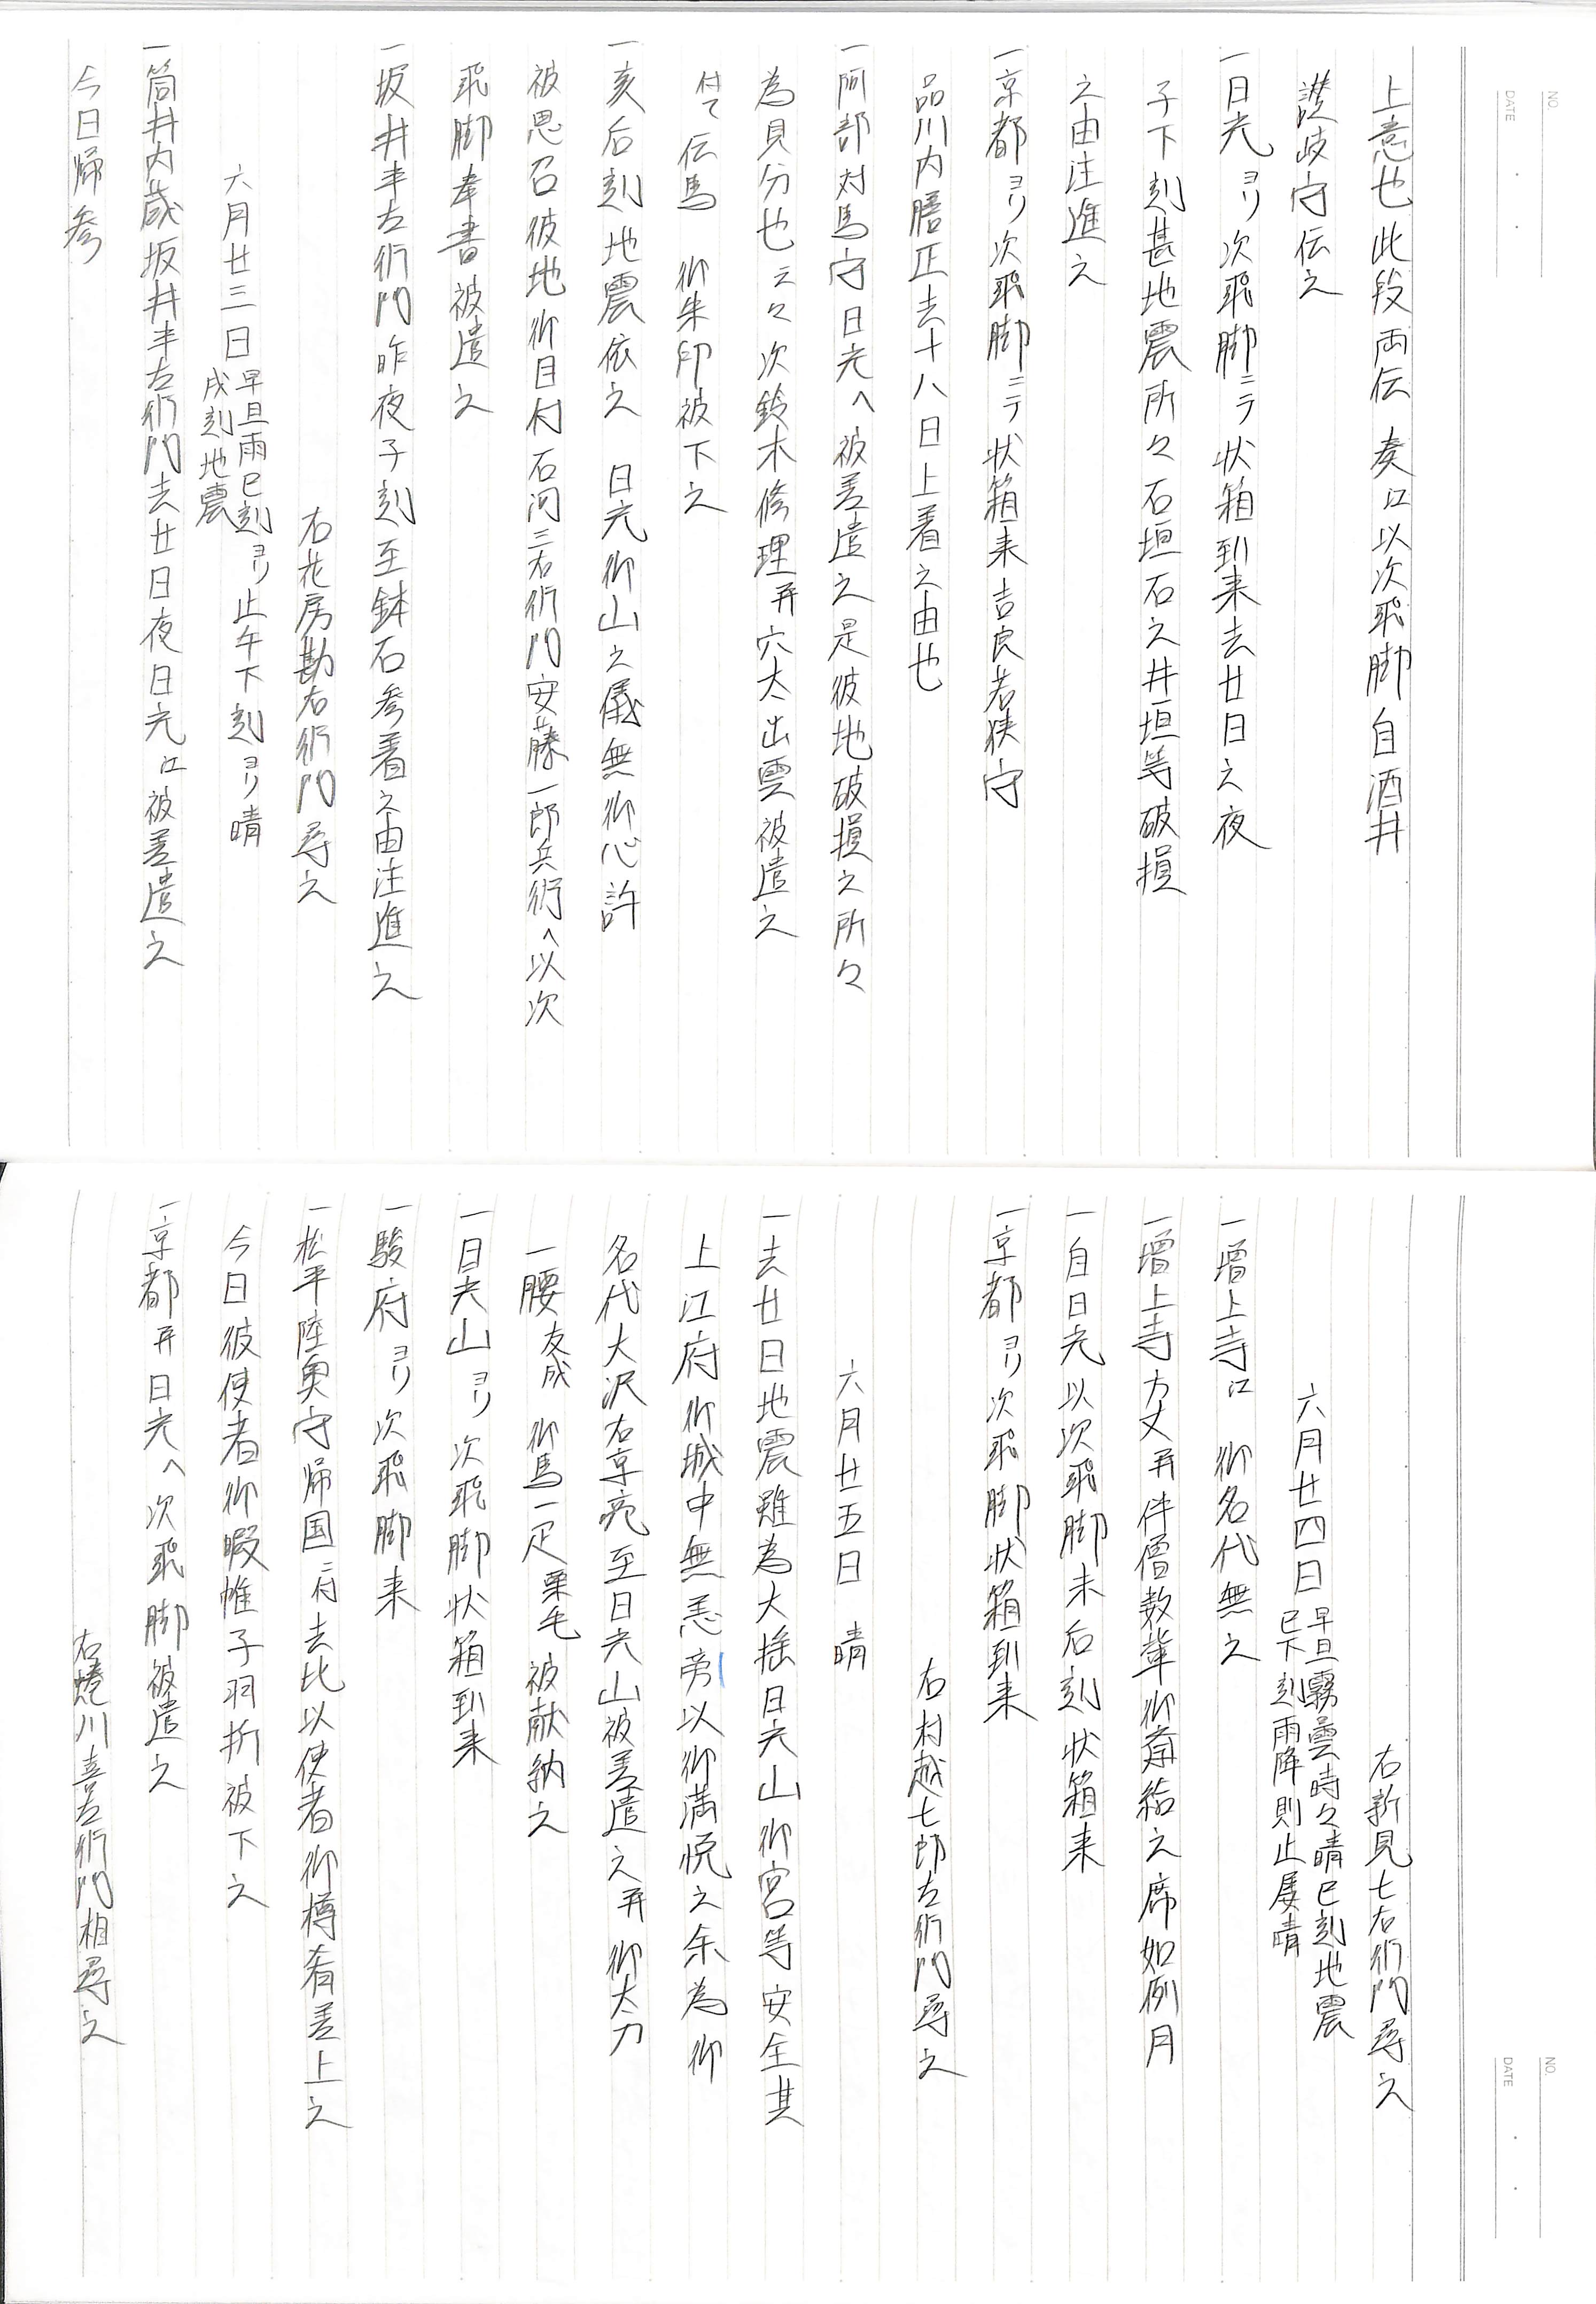 NO.
DATE
上意也此段両伝 奏江以次飛脚自酒井
讃岐守伝之
一日光ヨリ次飛脚ニテ状箱到来去廿日之夜
子下刻甚地震所々石垣石之井垣等破損
之由注進之
一京都ヨリ次飛脚ニテ状箱来吉良若狭守
品川内膳正去十八日上着之由也
一阿部対馬守日光へ被差遣之是彼地破損之所々
為見分也云々次鈴木修理并穴太出雲被遣之
付て伝馬 御朱印被下之
一亥后刻地震依之 日光御山之儀無御心許
被思召彼地御目付石河三右衛門安藤一郎兵衛へ以次
飛脚奉書被遣之
一坂井半左衛門昨夜子刻至鉢石参着之由注進之
右花房勘右衛門尋之
六月廿三日 早旦雨巳刻ヨリ止午下刻ヨリ晴
戌刻地震
一筒井内蔵坂井半左衛門去廿日夜日光江被差遣之
今日帰参
NO.
DATE
右新見七右衛門尋之
六月廿四日 早旦霧曇時々晴巳刻地震
巳下刻雨降則止屡晴
一増上寺江 御名代無之
一増上寺方丈并伴僧数輩御斎給之席如例月
一自日光以次飛脚未后刻状箱来
一京都ヨリ次飛脚状箱到来
右村越七郎左衛門尋之
六月廿五日 晴
一去廿日地震雖為大揺日光山御宮等安全其
上江府御城中無恙旁以御満悦之余為御
名代大沢右京亮至日光山被差遣之并御太刀
一腰友成 御馬一疋栗毛被献納之
一日光山ヨリ次飛脚状箱到来
一駿府ヨリ次飛脚来
一松平陸奥守帰国ニ付去比以使者御樽肴差上之
今日彼使者御暇帷子羽折被下之
一京都并日光へ次飛脚被遣之
右蜷川喜左衛門相尋之